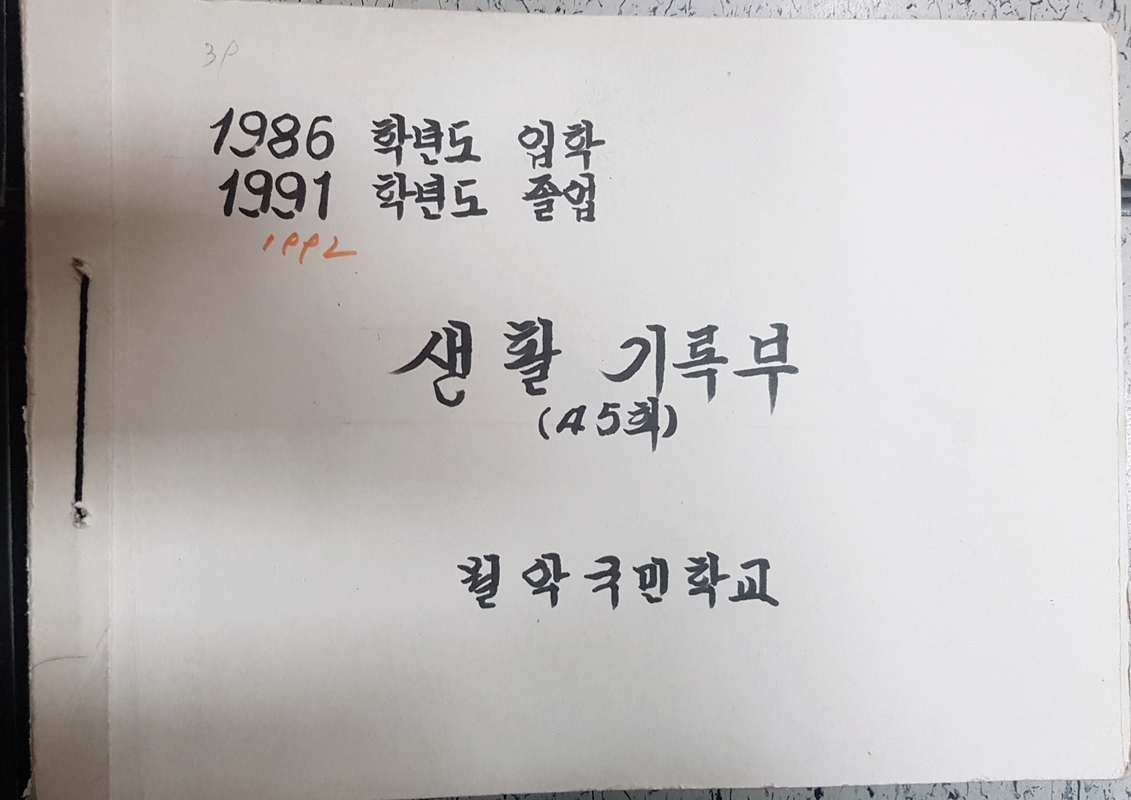 3P
1986 학년도 입학
1991 학년도 졸업
1992
생활 기록부
(45회)
월악국민학교